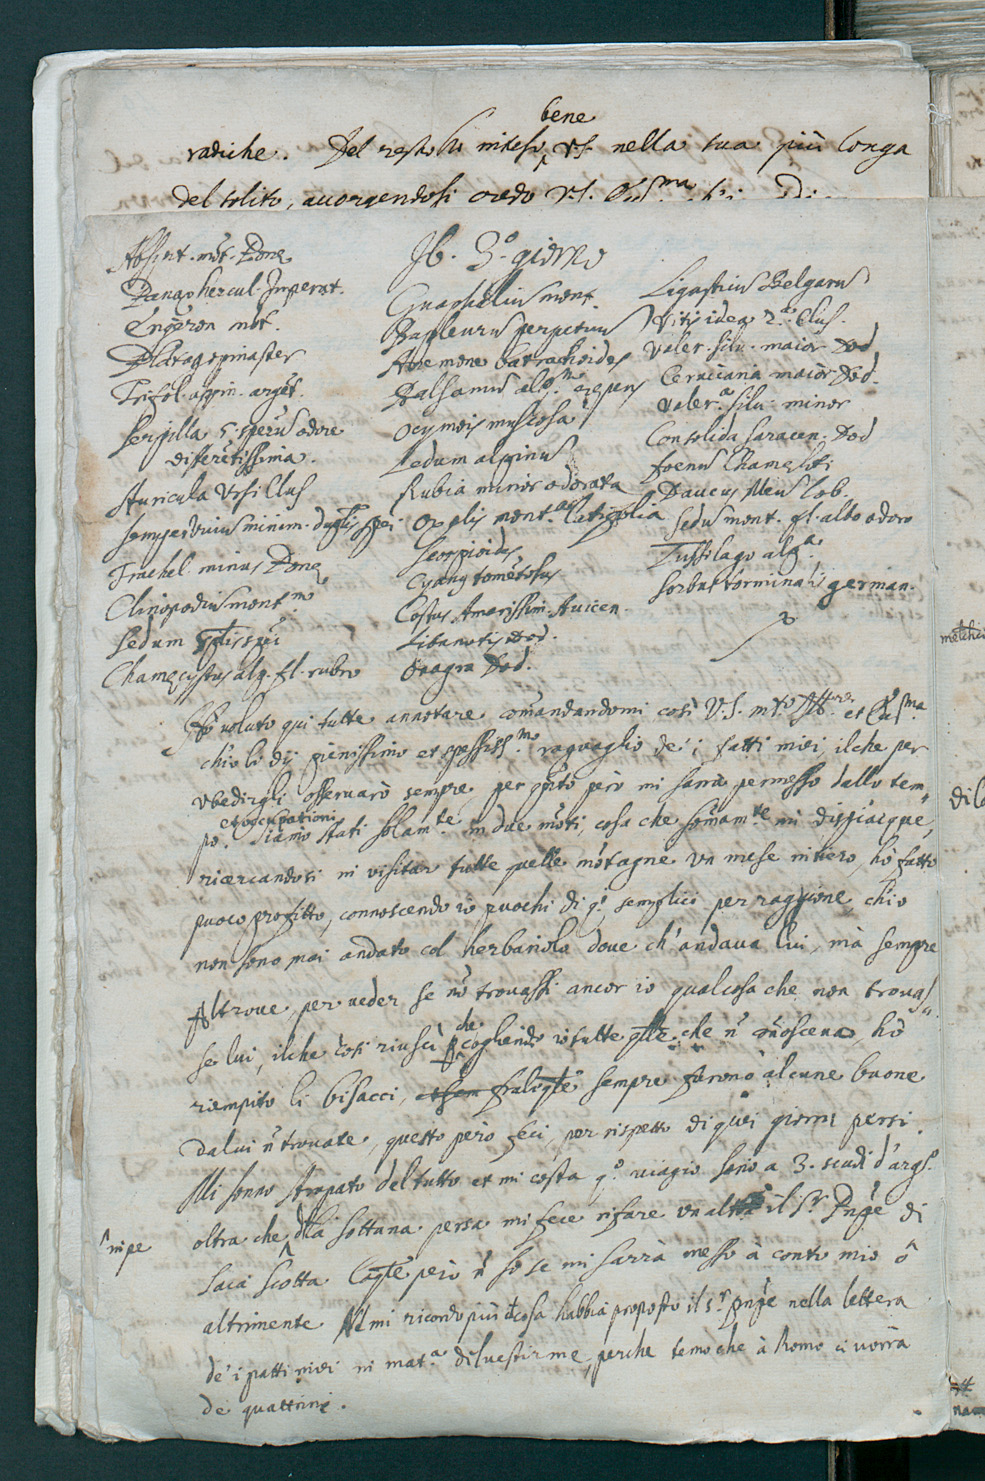 bene
radiche. Del resto hò inteso V.S. nella sua più longa
del solito, accorgendosi credo V.S.
Absynt. mōt. Donę
Danax hercul. Imperat.
Engeron mōt.
Trifol. alpin. argēt.
Serpilla 5. sperū odore
diferētissima.
Auricula Vrsi
Trachel. minus Donę
Clinopodiū mont.no
Sedum
Chamęcystus alp. fl. rubro
Ib. 3.o giorno
Gnaphaliū mont.
Bupleurū perpetuū
Anemone batrachioides
Balsamū alp.m repens
Ocymois muscosa
Ledum alpinū
Rubia minor odorata
Oxalis mont.as latifolia
Scorpioides
Cyanus tomētosus
Costus Amarissim. Auicen.
Libanotis Dod.
Onagra Dod.
Ligusticū Belgarū
Vitis idea 2.a Clus.
Valer. silu. maior Dod
Cruciana maior Dod.
Valer.a silu. minor
Consolida saracen. Dod
Foenū
Daucus Meū Lob.
Sedū mont. fl. albo odoro
Tussilago alp.a
Sorbus torminalis german.
Hò uoluto qui tutte annotare comandandomi così V.S. mto
ch'io li dij pienissimo et spessiss.mo raguaglio de'i fatti miei, ilche per
vbedirgli osseruarò sempre, per quāto però mi sarrà permesso dallo tem„
et occupationi
po. Siamo stati solam.te in due mōti, cosa che somam.te mi dispiacque,
ricercandosi in visitar tutte quelle mōtagne vn mese intiero, hò fatto
puoco profitto, connoscendo io puochi di q.i semplici per raggione ch'io
non sono mai andato col herbariolo doue ch'andaua lui, mà sempre
Altroue per ueder se nō trouassi ancor io qualcosa che non trouas„
che
se lui, ilche così riuscì, cogliendo io tutte qlle che nō conosceua, hò
riempito li bisacci, sempre furono alcune buone
da lui nō trouate, questo però feci, per rispetto di quei giorni persi.
Mi sonno strapato del tutto et mi costa q.o uiagio sino a 3. scudi d'arg.o
oltra che dlla sottana persa mi fece rifare un altra il S.r Pnpe di
in pe
Saia Scotta laqle però nō so se mi sarrà messo à conto mio ò
altrimente. Nè mi ricordo più cosa habbia proposto il S.r Pnpe nella lettera
de'i patti miei in mat.a di uestirme, perche temo che à Roma ci vorrà
de quattrini.